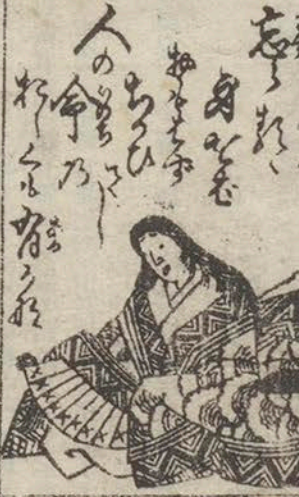 忘らるゝ
身をば
おもはず
ちかひ
てし
人の
命乃
おしくも有かな